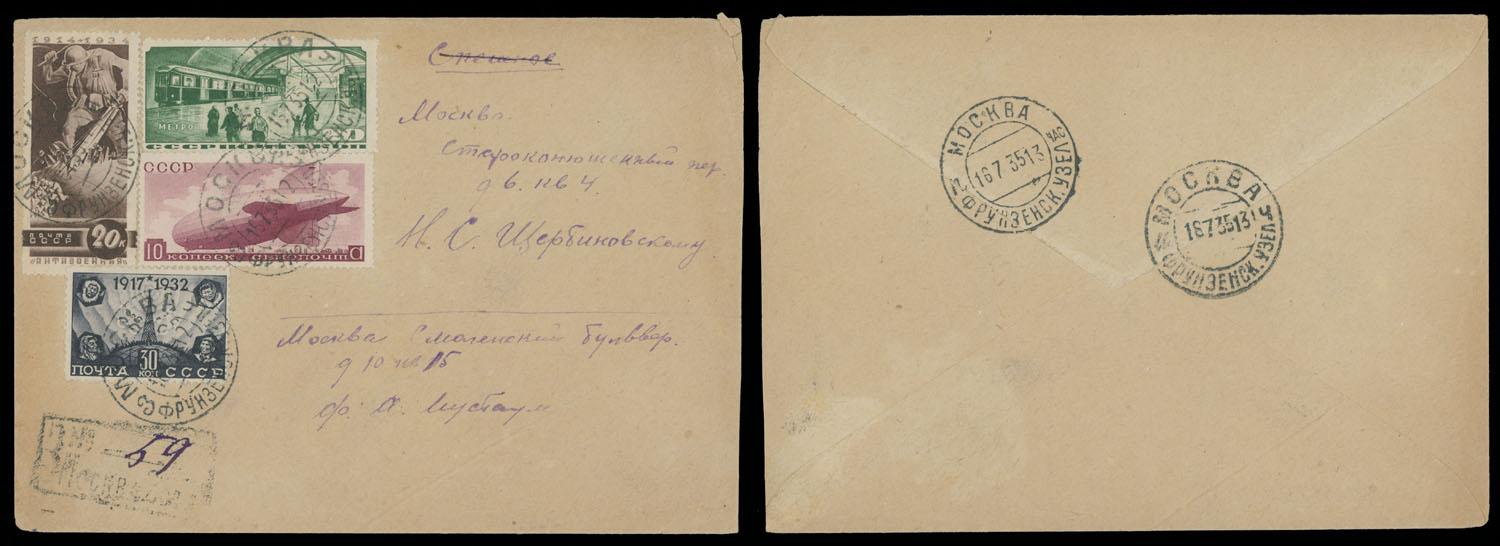 1914-1934
ПОЧТА
СССР
20К
"АНТИВОЕННАЯ"
МЕТРО
СССР
СССР
10 КОПЕЕК
1917★1932
30
КОП
ПОЧТА СССР
МОСКВА
ФРУНЗЕНСК
Спешное
Москва
Староконюшенный пер.
д 6. кв 4.
Н. С. Щербиновскому
Москва Смоленский бульвар.
д 10 кв 15
№ 59
Москва
МОСКВА
16 7 35 13
ЧАС
ФРУНЗЕНСК. УЗЕЛ
МОСКВА
16 7 35 13
ФРУНЗЕНСК. УЗЕЛ